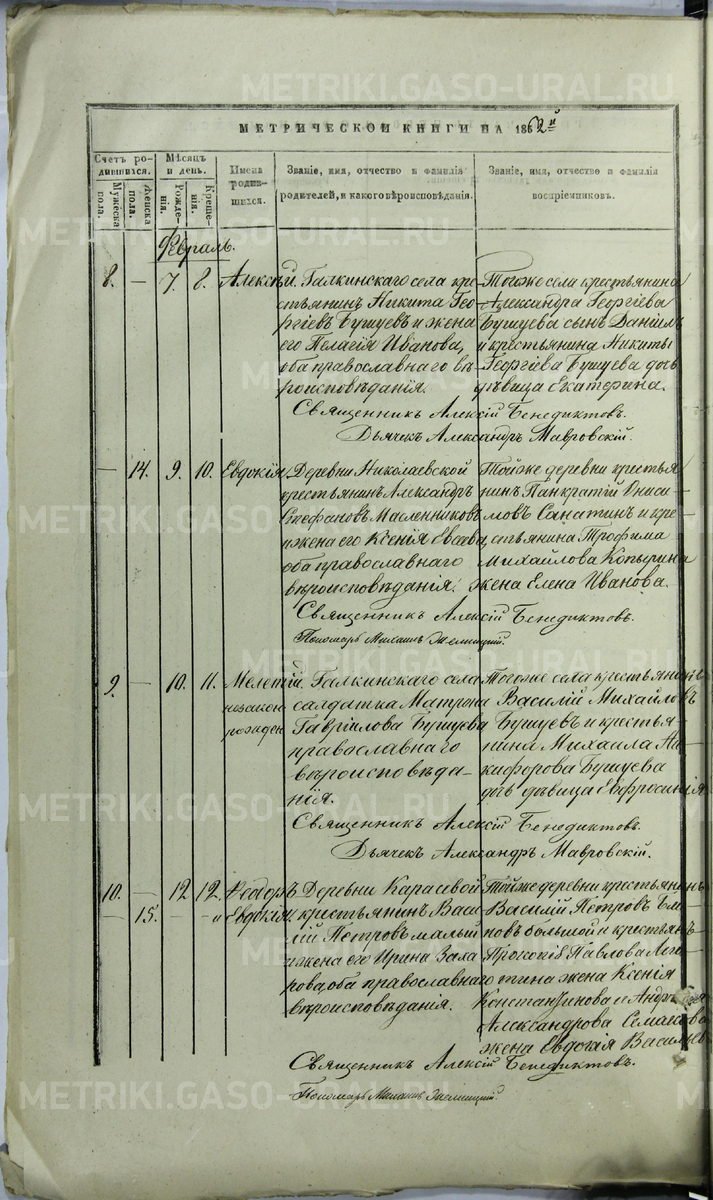 METRIKI.GASO-URAL.RU
МЕТРИЧЕСКОЙ КНИГИ НА 1862й
Счетъ родившихся.
Мѣсяцъ и день.
Имена родившихся.
Званіе, имя, отчество и фамилія родителей, и какого вѣроисповѣданія.
Званіе, имя, отчество и фамилія воспріемниковъ.
Мужеска пола.
Женска пола.
Рожденія.
Крещенія.
Февраль.
8. — 7. 8. Алексѣй.
Галкинскаго села кре-
стьянинъ Никита Гео-
ргіевъ Бушуевъ и жена
его Пелагія Иванова,
оба православнаго вѣ-
роисповѣданія.
Тогоже села крестьянина
Александра Георгіева
Бушуева сынъ Даніилъ
и крестьянина Никиты
Георгіева Бушуева дочь
дѣвица Екатерина.
Священникъ Алексій Бенедиктовъ.
Дьячекъ Александръ Мавровскій.
— 14. 9. 10. Евдокія
Деревни Николаевской
крестьянинъ Александръ
Стефановъ Масленниковъ
и жена его Ксенія
оба православнаго
вѣроисповѣданія.
Тойже деревни крестья
нинъ Панкратій Ониси-
мовъ Санатинъ и кре-
стьянина Трофима
Михайлова Копырина
жена Елена Иванова.
Священникъ Алексій Бенедиктовъ.
Пономарь Михаилъ
9. — 10. 11. Мелетій.
незакон
рожден
Галкинскаго села
салдатка Матрона
Гавріилова Бушуева
православнаго
вѣроисповѣда-
нія.
Тогоже села крестьянинъ
Василій Михайловъ
Бушуевъ и кресть-
янина Михаила Ни-
кифорова Бушуева
дочь дѣвица Евфросинія
Священникъ Алексій Бенедиктовъ.
Дьячекъ Александръ Мавровскій.
10. — 12 12. Ѳеодоръ
— 15. — — и Евдокія
Деревни Карасевой
крестьянинъ Васи
лій Петровъ малый
и жена его Ирина Заха
рова, оба православнаго
вѣроисповѣданія.
Тойже деревни крестьянинъ
Василій Петровъ
большой и крестьян
Прокопія Павлова
жена Ксенія
Константинова и
Александрова Семакова
жена Евдокія Васильев
Священникъ Алексій Бенедиктовъ.
Пономарь Михаилъ